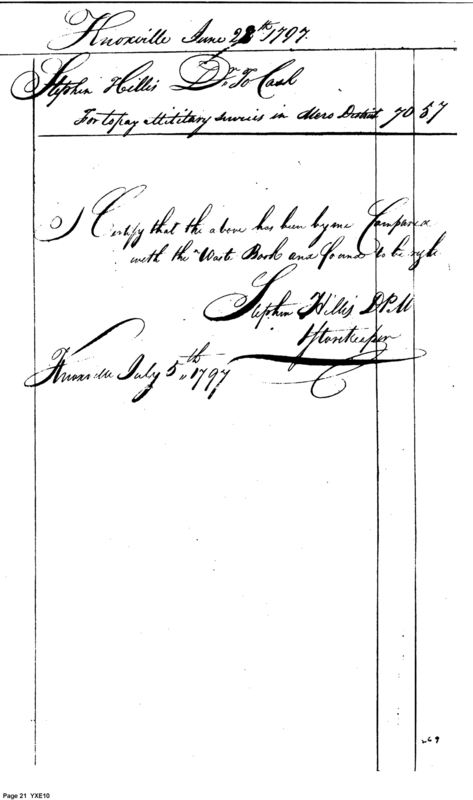 Knoxville June 28th 1797.
Stephen Hillis Dr. To Cash
For to pay Military services in Mero District 70 57
I Certify that the above has been by me Compared
with the Wast Book and found to be right
Stephen Hillis D P M
& Storekeeper
Knoxville July 5th 1797
269
Page 21 YXE10